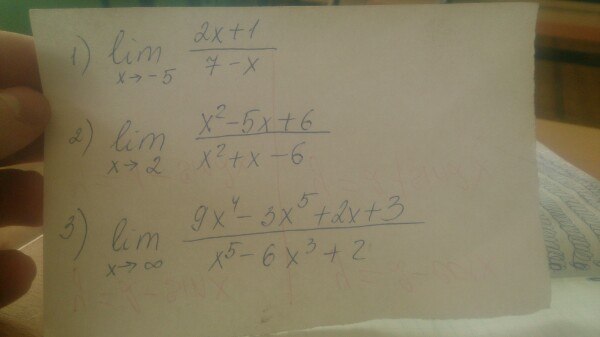 1) lim x→-5 (2x+1)/(7-x)
2) lim x→2 (x²-5x+6)/(x²+x-6)
3) lim x→∞ (9x⁴-3x⁵+2x+3)/(x⁵-6x³+2)